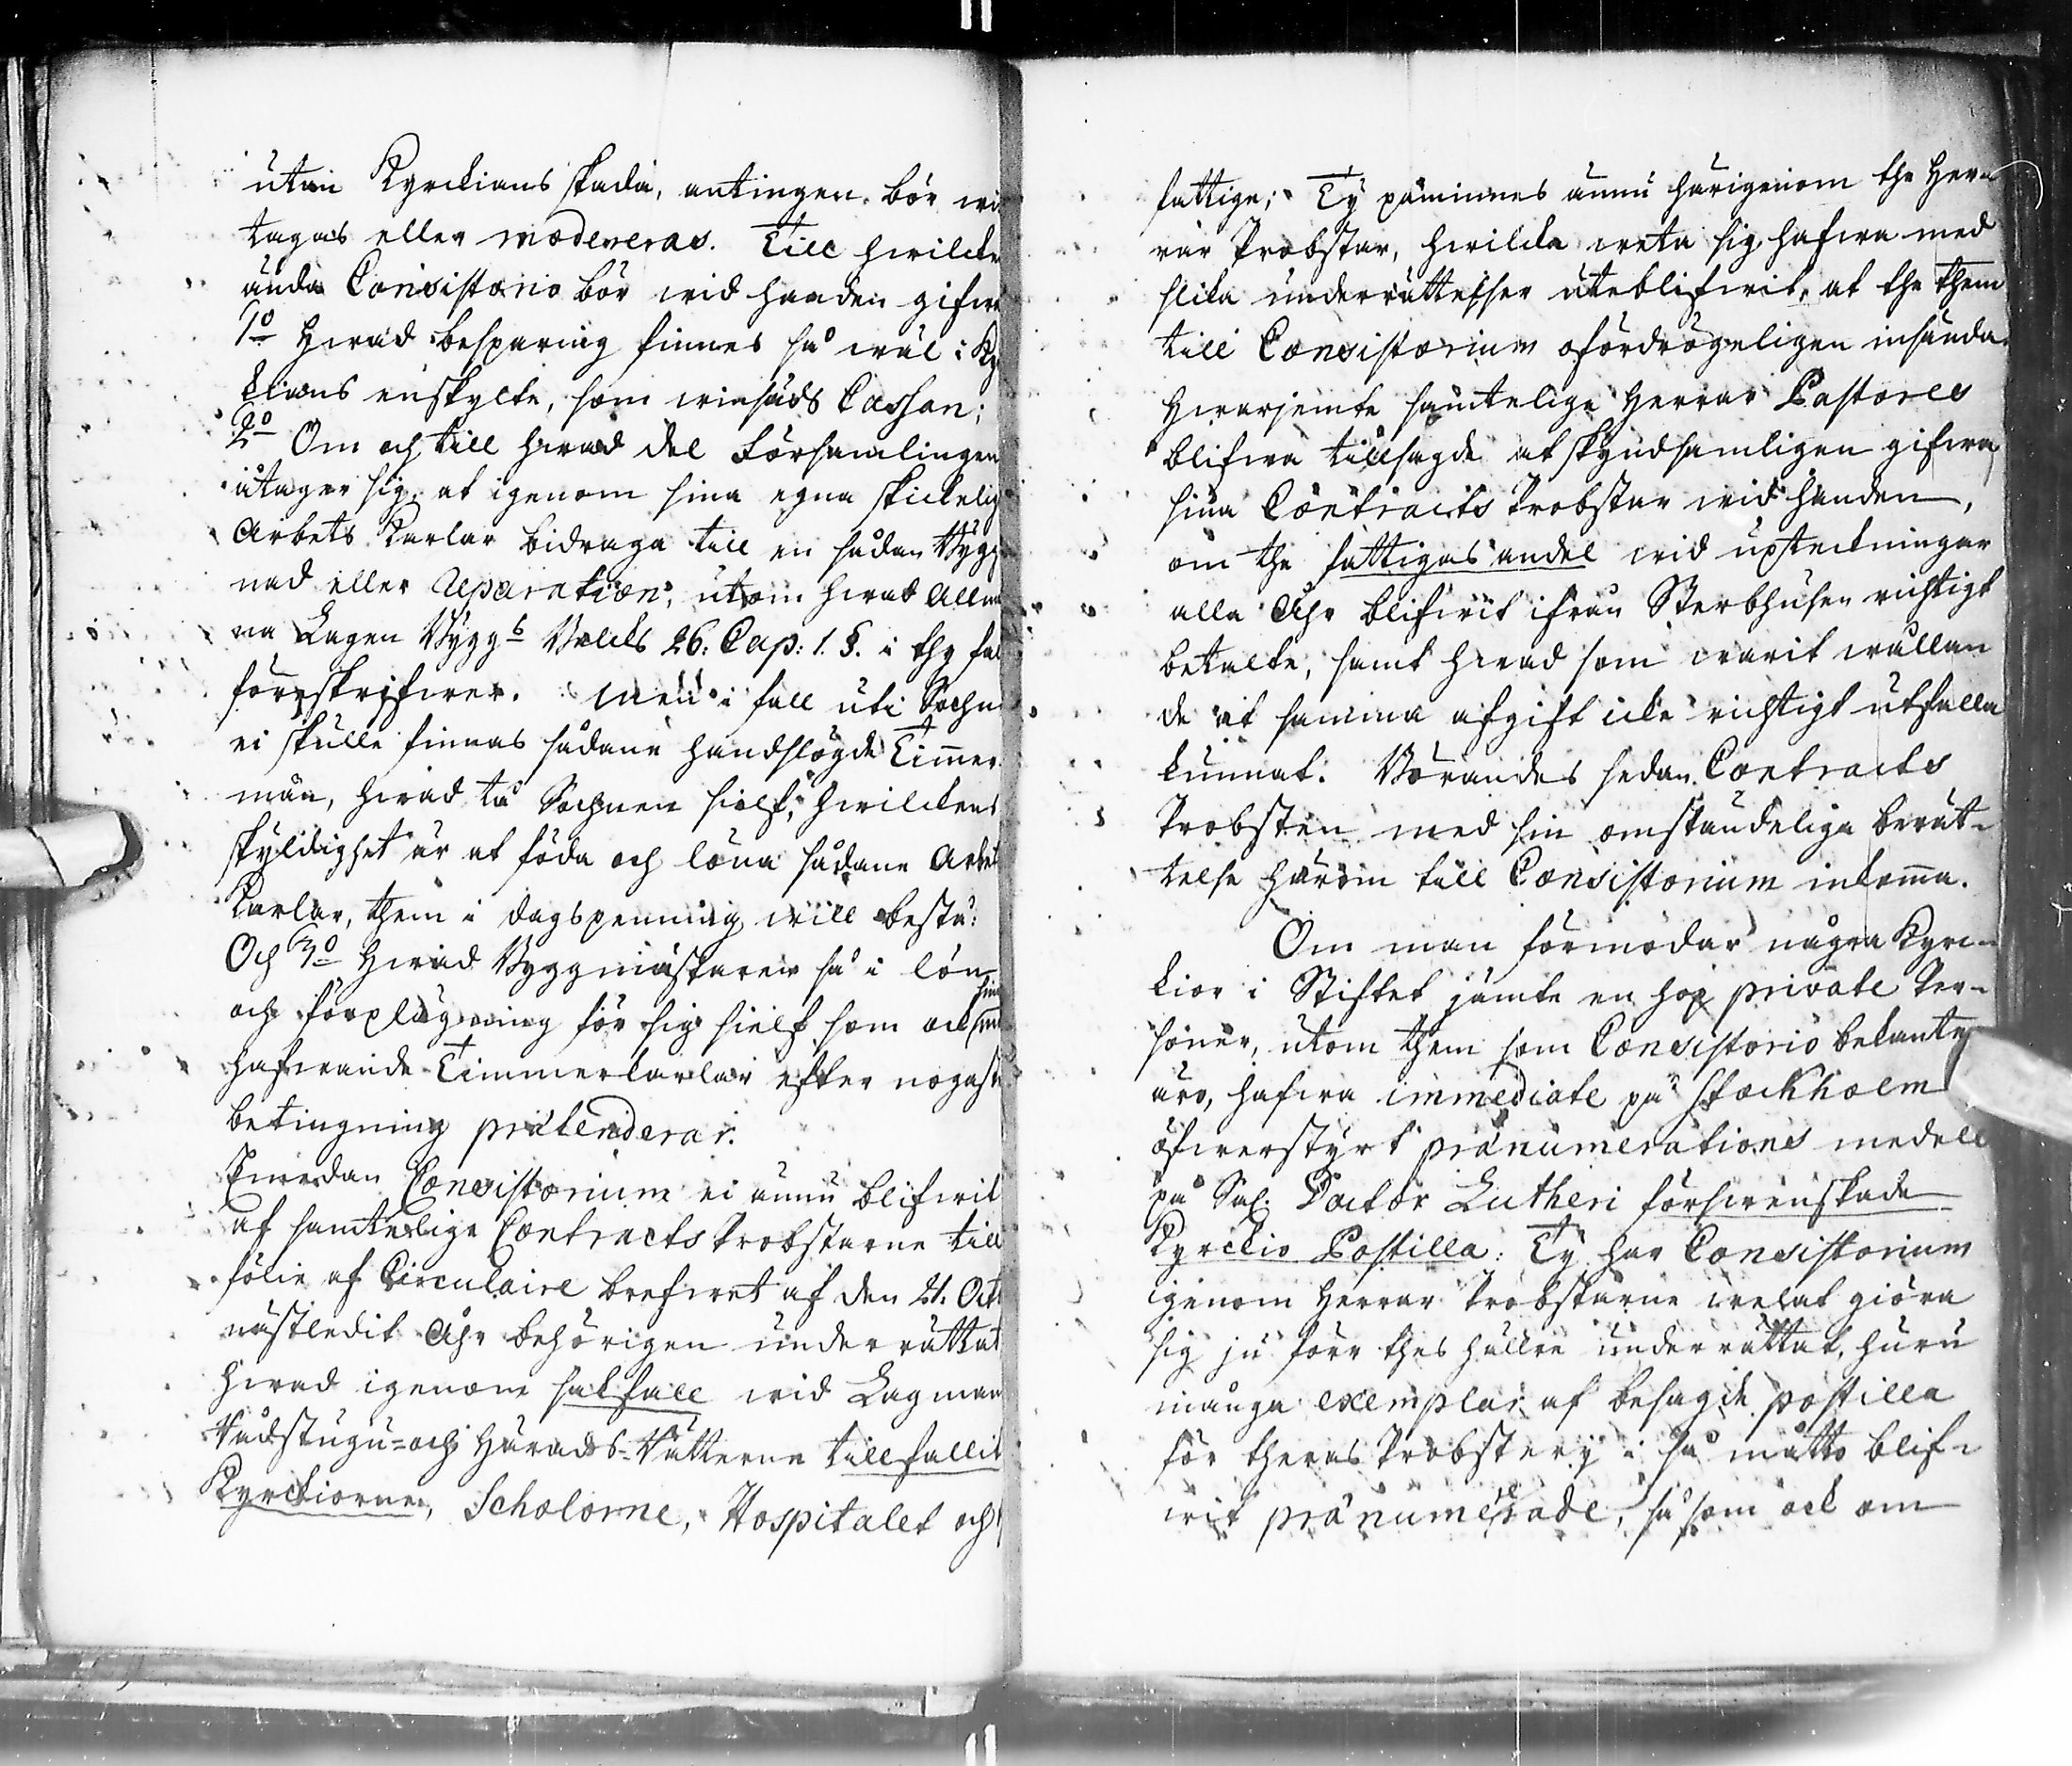 utan Kyrckians skada, antingen bör wid
tagas eller modereras. Till hwilcken
ända Consistorio bör wid handen gifwas
1o Hwad besparing finnes så wäl i Kyr
kians enskylte, som winsäds Cassan;
2o Om och till hwad del Församlingen
åtager sig, at igenom sina egna skickelig
Arbets Karlar bidraga till en sådan Bygg
nad eller Reparation, utom hwad Allmä
na Lagen Byggs Balcks 26: Cap: 1. §. i thy fall
föreskrifwer. Men i fall uti Sochn
ei skulle finnas sådane handslögde Timmer
män, hwad tå Sochnen sielf, hwilckens
skyldighet är at föda och löna sådane Arbets
Karlar, them i dagspenning will bestå:
Och 3o Hwad Byggmästaren så i lön
och förplägning för sig sielf som ock sine
hafwande Timmerkarlar efter nogaste
betingning prætenderar.
Emedan Consistorium ei ännu blifwit
af samtelige Contracts Probstarne till
följe af Circulaire brefwet af den 21. Oct
nästledit Åhr behörigen underrättat
hwad igenom sakfall wid Lagman
Rådstugu- och Härads-Rätterne tillfallit
Kyrckiorne, Scholorne, Hospitalet och
fattige; Ty påminnes ännu härigenom the Her-
rar Probstar, hwilcka weta sig hafwa med
slika underrättelser uteblifwit, at the them
till Consistorium ofördrögeligen insända.
Hwarjemte samtelige Herrar Pastores
blifwa tillsagde at skyndsamligen gifwa
sina Contracts Probstar wid handen,
om the fattigas andel wid upteckningar
alla Åhr blifwit ifrån Sterbhusen richtigt
betalte, samt hwad som warit wållan
de at samma afgift icke richtigt utfalla
kunnat. Börandes sedan Contracts
Probsten med sin omständeliga berät-
telse härom till Consistorium inkomma.
Om man förmodar några Kyrc-
kior i Stiftet jämte en hop private Per-
soner, utom them som Consistorio bekante
äro, hafwa immediate på Stockholm
öfwerstyrt pränumerations medell
på Sal. Doctor Lutheri förswenskade
Kyrckio Postilla: Ty har Consistorium
igenom Herrar Probstarne welat giöra
sig ju förr thes hällre underrättat, huru
många exemplar af besagde postilla
för theras Probstery i så måtto blif-
wit pränumererade, så som ock om